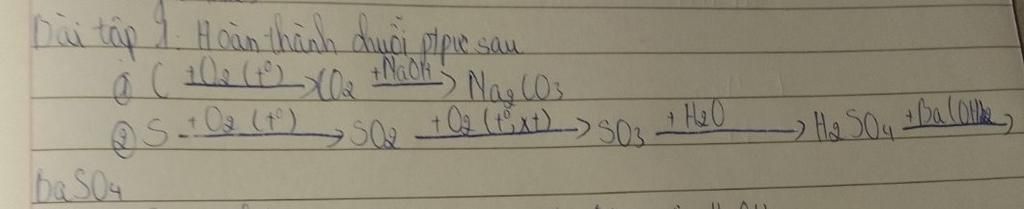 Bài tập 1. Hoàn thành chuỗi ptpư sau
① C +O2 (t°)→ CO2 +NaOH→ Na2CO3
② S +O2 (t°)→ SO2 +O2 (t°, xt)→ SO3 +H2O→ H2SO4 +Ba(OH)2→
BaSO4